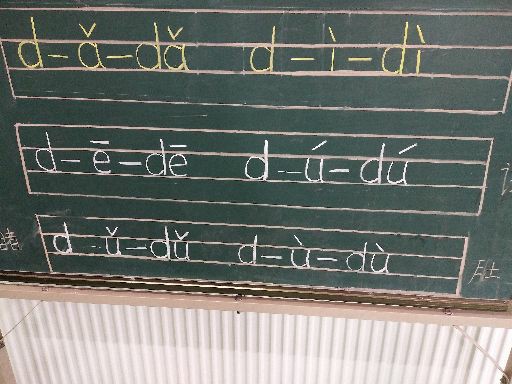 d-ǎ-dǎ d-ì-dì
d-ē-dē d-ú-dú
d-ǔ-dǔ d-ù-dù
肚